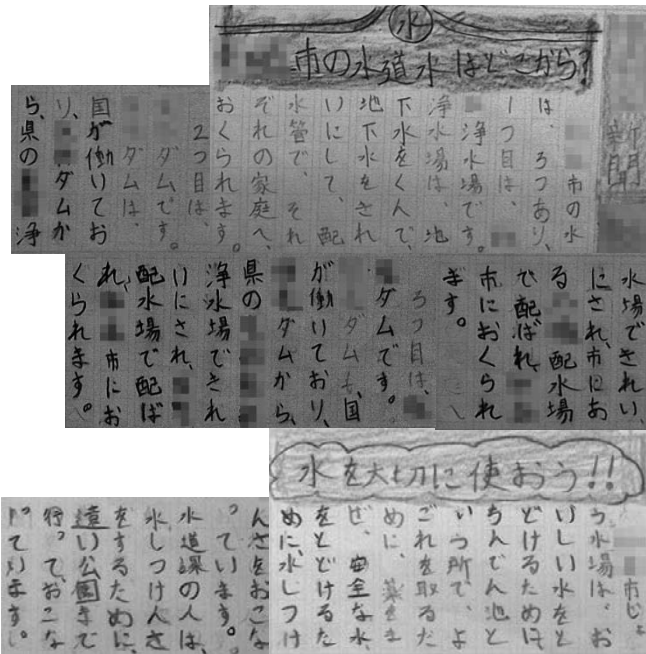 水
市の水道水はどこから?
新聞
市の水
は、3つあり、
1つ目は、
浄水場です。
浄水場は、地
下水をくんで、
地下水をきれ
いにして、配
水管で、それ
ぞれの家庭へ、
おくられます。
2つ目は、
ダムです。
ダムは、
国が働いてお
り、ダムか
ら、県の浄
水場できれい
にされ、市にお
る配水場
で配ばれ、
市におくられ
ます。
3つ目は、
ダムです。
ダムも、国
が働いており、
ダムから、
県の
浄水場できれ
いにされ、
配水場で配ば
れ、市にお
くられます。
水を大切に使おう!!
市じょ
う水場は、お
いしい水をと
どけるために
ちんでん池と
いう所で、よ
ごれを取るた
めに、薬をま
ぜ、安全な水
をとどけるた
めに、水しつけ
んさをおこな
っています。
水道課の人は、
水しつけんさ
をするために、
遠い公園まで
行って、おこな
っています。